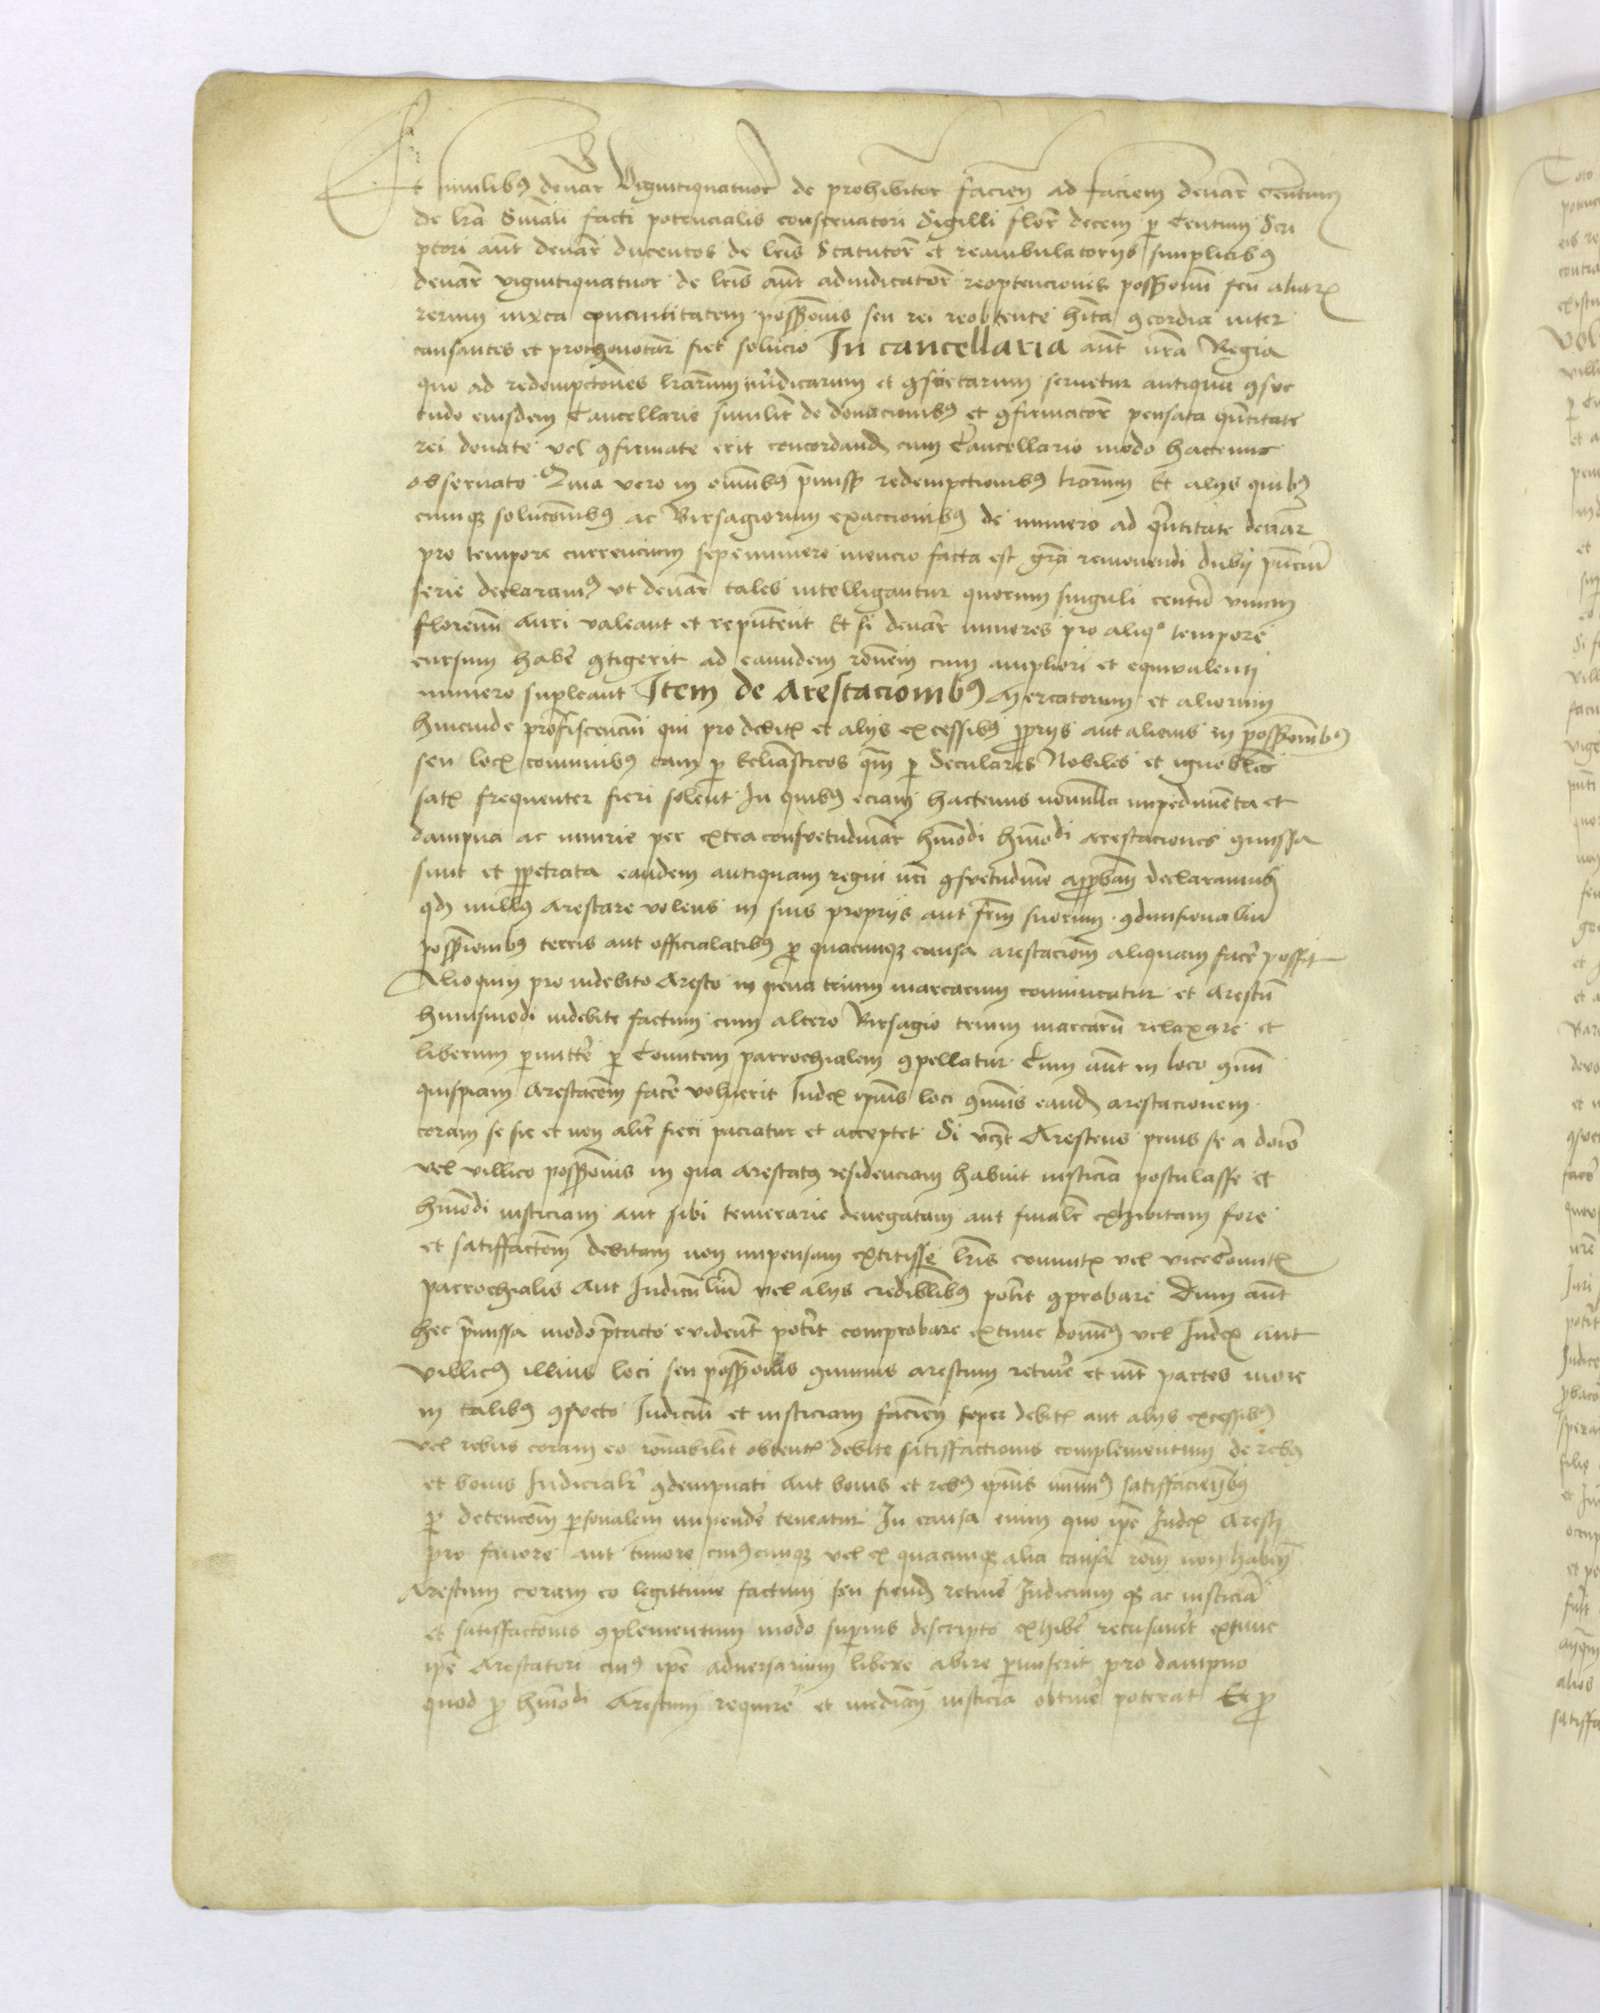 Et similibus denar Vigintiquatuor de prohibitor facien ad faciem denar Centum
de lra Sniali facti potencialis conservatori Sigilli flor decem p Centum Scri
ptori aut denar ducentos de lris Statutor et reambulatoriis simplicibus
denar vigintiquatuor de lris aut adiudicator reoptencionis possonum seu aliarum
rerum iuxta continitatem possonis seu rei reobtente hita concordia inter
causantes et prothonotar fiet solucio In cancellaria aut nra Regia
quo ad redempcones lrarum iuridicarum et consuetarum servetur antiqua consue
tudo eiusdem Cancellarie similit de donacionibus et confirmacor pensata quantitate
rei donate vel confirmate erit concordand cum Cancellario modo hactenus
observato Quia vero in omnibus pmissis redempcionibus lrarum Et aliis quibus
cumque solucionibus ac Birsagiorum exaccionibus de numero ad quntitate denar
pro tempore currencium sepenumero mencio facta est gra removendi dubii pncium
serie declaramus ut denar tales intelligantur quorum singuli centum unum
florenum Auri valeant et reputent Et si denar minores pro aliquo tempore
cursum habe contigerit ad eamdem ronem cum ampliori et equivalenti
numero supleant Item de Arestacionibus Mercatorum et aliorum
hincinde proficiscencium qui pro debitis et aliis excessibus propriis aut alienis in possonibus
seu locis comunibus tam p Ecliasticos qm p Seculares Nobiles et ignobiles
satis frequenter fieri solent In quibus eciam hactenus nonnulla impedimenta et
dampna ac iniurie per extraconsuetudinar hmodi hmodi arestaciones comissa
sunt et perpetrata eandem antiquam regni nri consuetudine approban declaramus
qd nullus arestare volens in suis propriis aut frm suorum condivisionalium
possionibus terris aut officialatibus p quacumque causa arestacionem aliquam facere possit
Alioquin pro indebito Aresto in pena trium marcarum convincatur et arestum
huiusmodi indebite factum cum altero Birsagio trium marcarum relaxare et
liberum pmitte p Comitem parrochialem compellatur Cum aut in loco comuni
quispiam Arestacem facere voluerit Iudex ipius loci comunis eand arestacionem
coram se sic et non alir fieri paciatur et acceptet Si vczt Arestans prius se a dno
vel villico possonis in qua arestatus residenciam habuit iusticia postulasse et
hmodi iusticiam aut sibi temerarie denegatam aut finalr exhibitam fore
et satisfactem debitam non impensam extitisse lris comitis vel viceComitis
parrochialis Aut Iudicu lium vel aliis credibilibus potit comprobare Dum aut
hec pmissa modo ptacto evident poterit comprobare extunc dominus vel Iudex aut
villicus illius loci seu possonis comunis arestum retinere et int partes more
in talibus consueto Iudicium et iusticiam facien super debitis aut aliis excessibus
vel rebus coram eo ronabilit obtentis debite satisfactionis complementum de rebus
et bonis Iudicialr condempnati aut bonis et rebus ipius minus satisfacientibus
p detencom psonalem impende teneatur In causa enim quo ipe Iudex Aresti
pro favore aut timore cuiuscumque vel ex quacumque alia causa rom non haben
Arestum coram eo legittime factum seu fiend retine Iudicium que ac iusticia
et satisfactionis complementum modo supius descripto exhibe recusaret extunc
ipe Arestatori cuius ipe adversarium libere abire pmiserit pro dampno
quod p hmodi Arestum require et mediam iusticia obtine poterat Et p